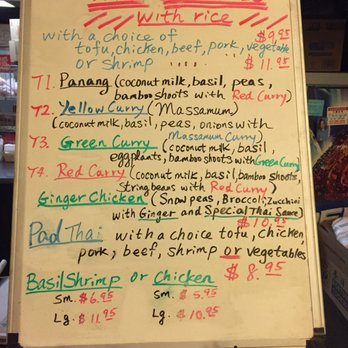 with rice
with a choice of $9.95
tofu, chicken, beef, pork, vegetable
or shrimp ..... $11.95
T1. Panang (coconut milk, basil, peas,
bamboo shoots with Red Curry)
T2. Yellow Curry (Massamum)
(coconut milk, basil, peas, onions with
Massamum Curry)
T3. Green Curry (coconut milk, basil
eggplants, bamboo shoots with Green Curry)
T4. Red Carry (coconut milk, basil, bamboo shoots,
String beans with Red Curry)
Ginger Chicken (Snow peas, Broccoli, Zucchini
with Ginger and Special Thai Sauce)
$10.95
Pad Thai with a choice tofu, chicken,
pork, beef, shrimp or vegetables
$8.95
Basil Shrimp or Chicken
Sm. $6.95 Sm. $5.95
Lg. $11.95 Lg. $10.95